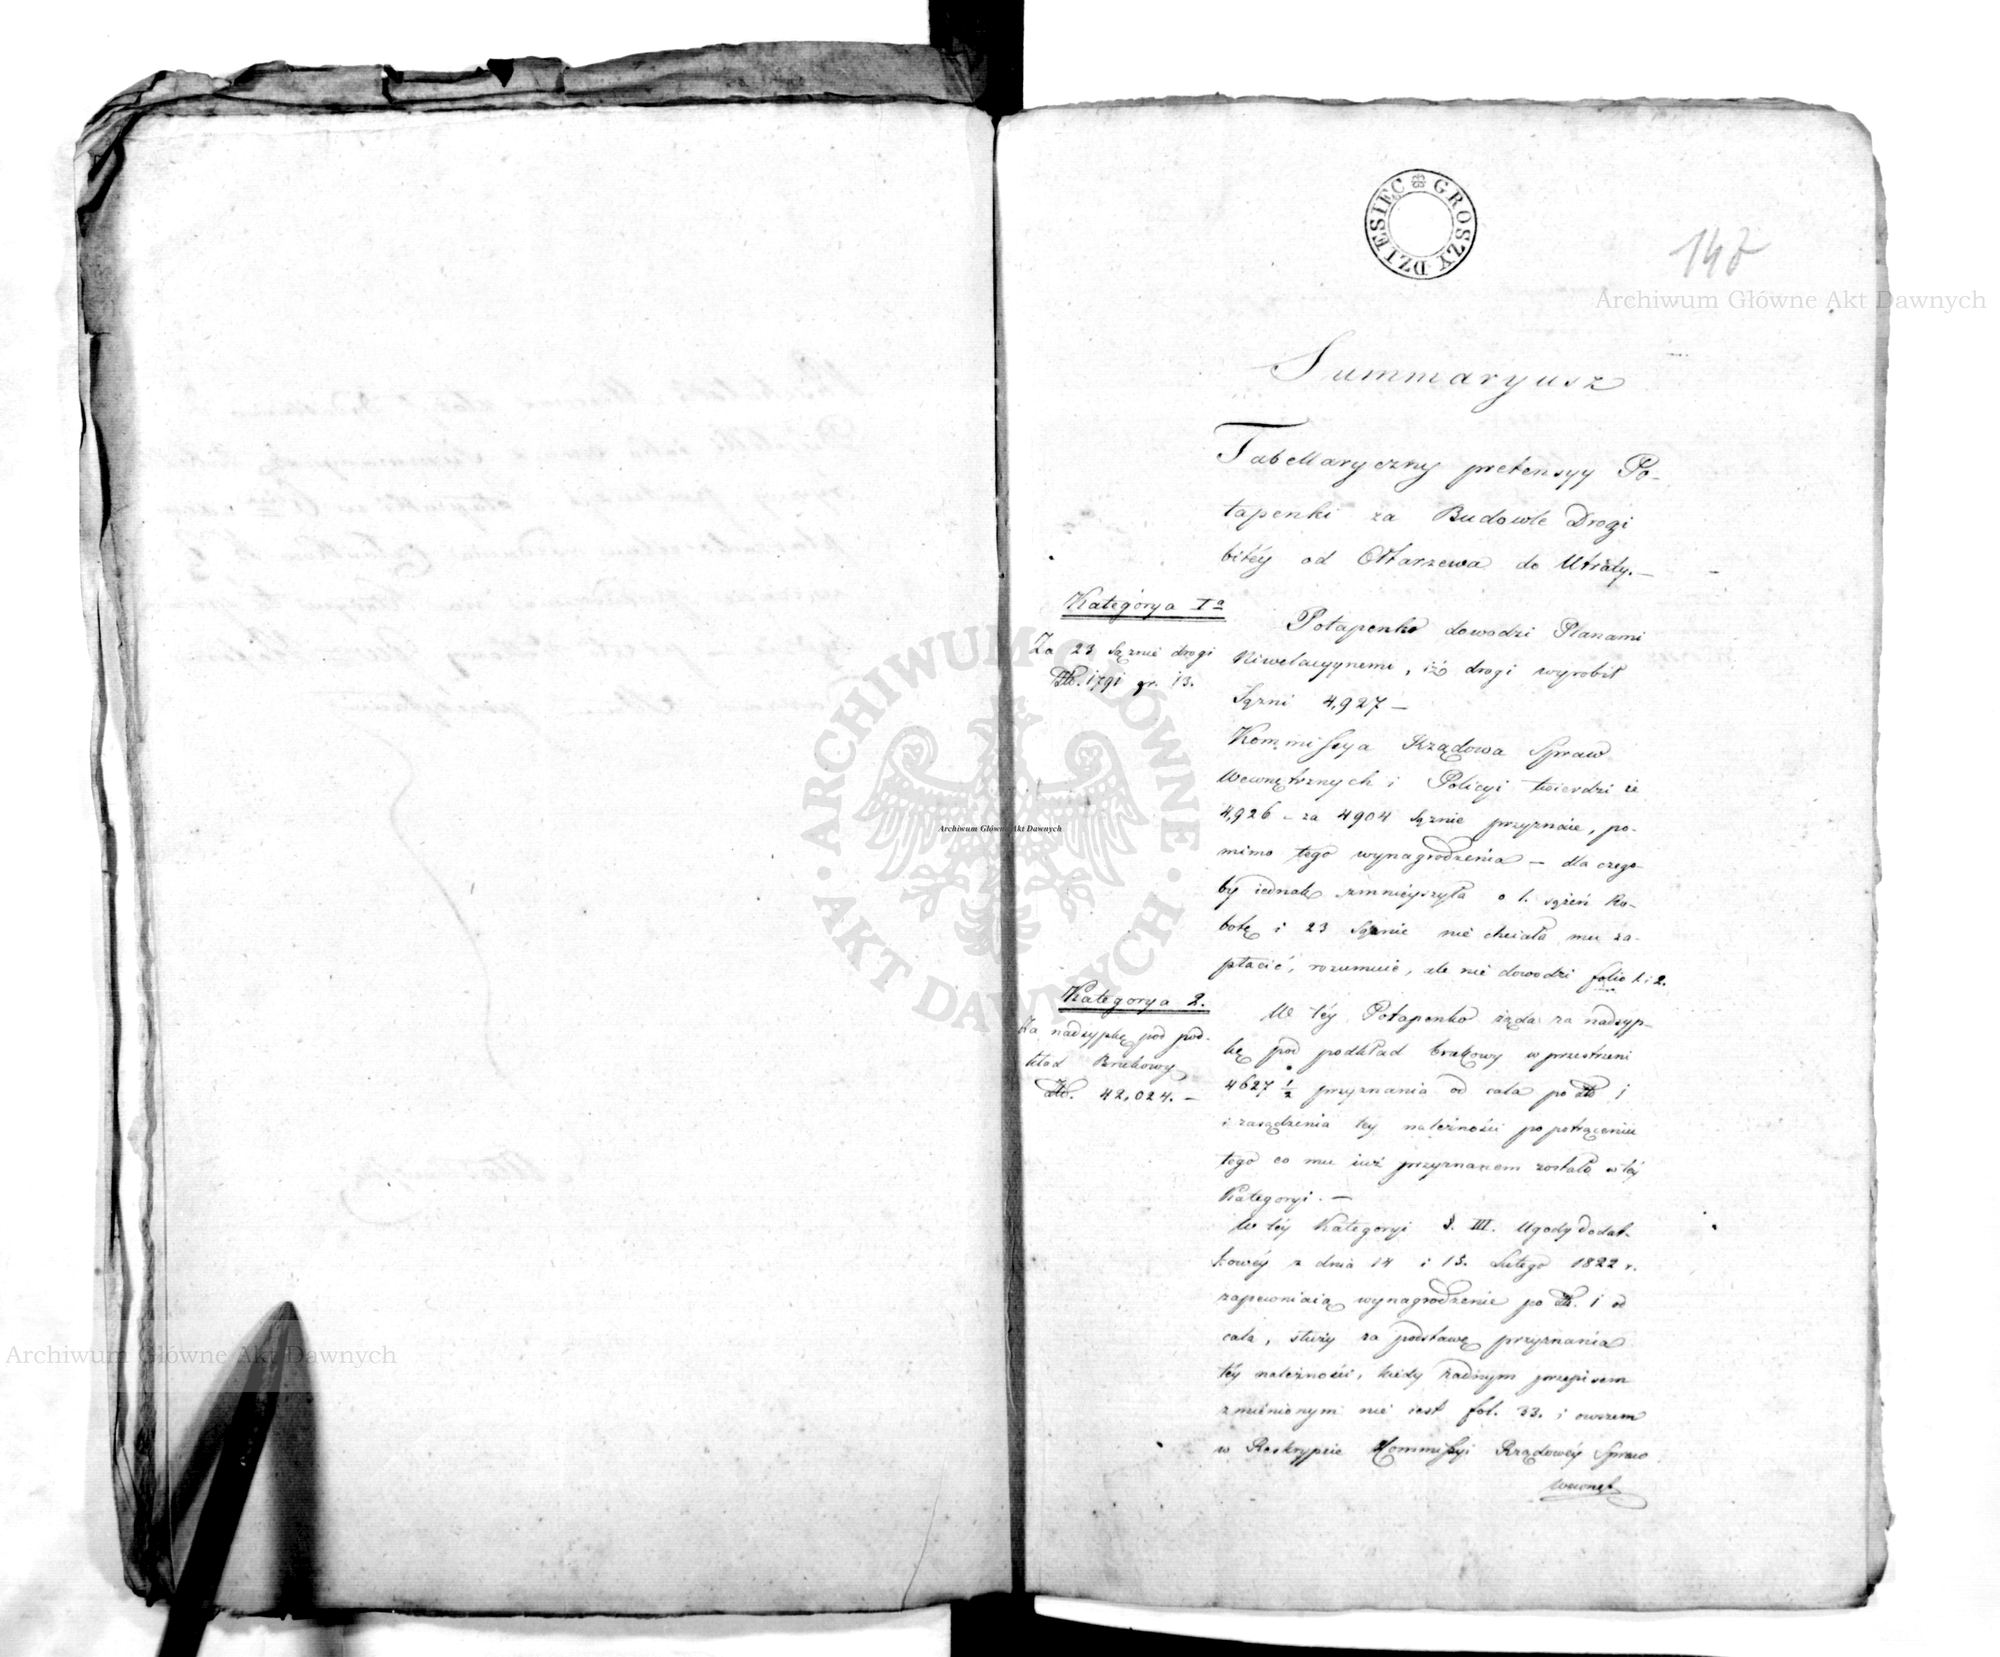 DZIESIĘĆ GROSZY
147
Archiwum Główne Akt Dawnych
Summaryusz
Tabellaryczny pretensyy Po-
tapenki za Budowle Drogi
bitéy od Ołtarzewa do Utraty.—
Kategorya Iª
Za 23 Sążnie drogi
Złt. 1791 gr. 13.
Potapenko dowodzi Planami
Niwelacyynemi, iż drogi wyrobił
Sążni 4,927 —
Kommissya Rządowa Spraw
Wewnętrznych i Policyi twierdzi że
4,926 — za 4904 Sążnie przyznaie, po-
mimo tego wynagrodzenia — dla czego-
by iednak zmnieyszyła o 1. sążeń Ro-
botę i 23 Sążnie nie chciała mu za-
płacić, rozumuie, ale nie dowodzi folio 1 i 2.
Kategorya 2.
Za nadsypkę pod pod-
kład Brukowy
Złt. 42,024. —
W téy Potapenko żąda za nadsyp-
kę pod podkład brukowy w przestrzeni
4627 1/2 przyznania od cala po Złt 1
i zasądzenia téy należności po potrąceniu
tego co mu iuż przyznanem zostało w téy
Kategoryi. —
W téy Kategoryi §. III. Ugody dodat-
kowéy z dnia 14 i 15. Lutego 1822 r.
zapewniaią wynagrodzenie po Złt. 1 od
cala, służy za podstawę przyznania
téy należności, kiedy żadnym przepisem
zmienionym nie iest fol. 33. i owszem
w Reskrypcie Kommissyi Rządowéy Spraw
Wewnęt
ARCHIWUM GŁÓWNE
AKT DAWNYCH
Archiwum Główne Akt Dawnych
Archiwum Główne Akt Dawnych